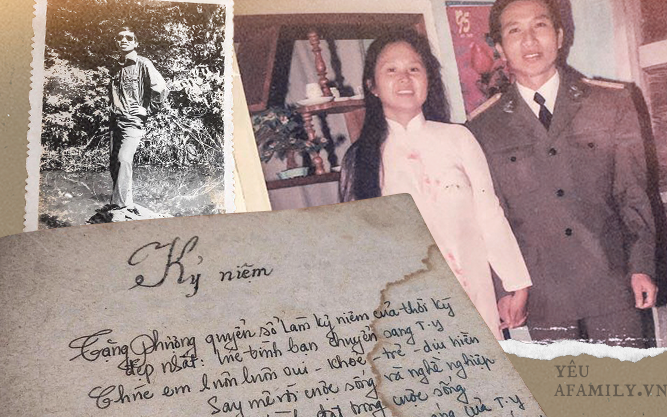 Kỷ niệm
Tặng Phương quyển sổ làm kỷ niệm của thời kỳ
đẹp nhất: lúc tình bạn chuyển sang T.Y
Chúc em luôn luôn vui - khỏe - trẻ - dịu hiền
Say mê với cuộc sống và nghề nghiệp
đạt trong cuộc sống
của T.Y
YÊU
AFAMILY.VN